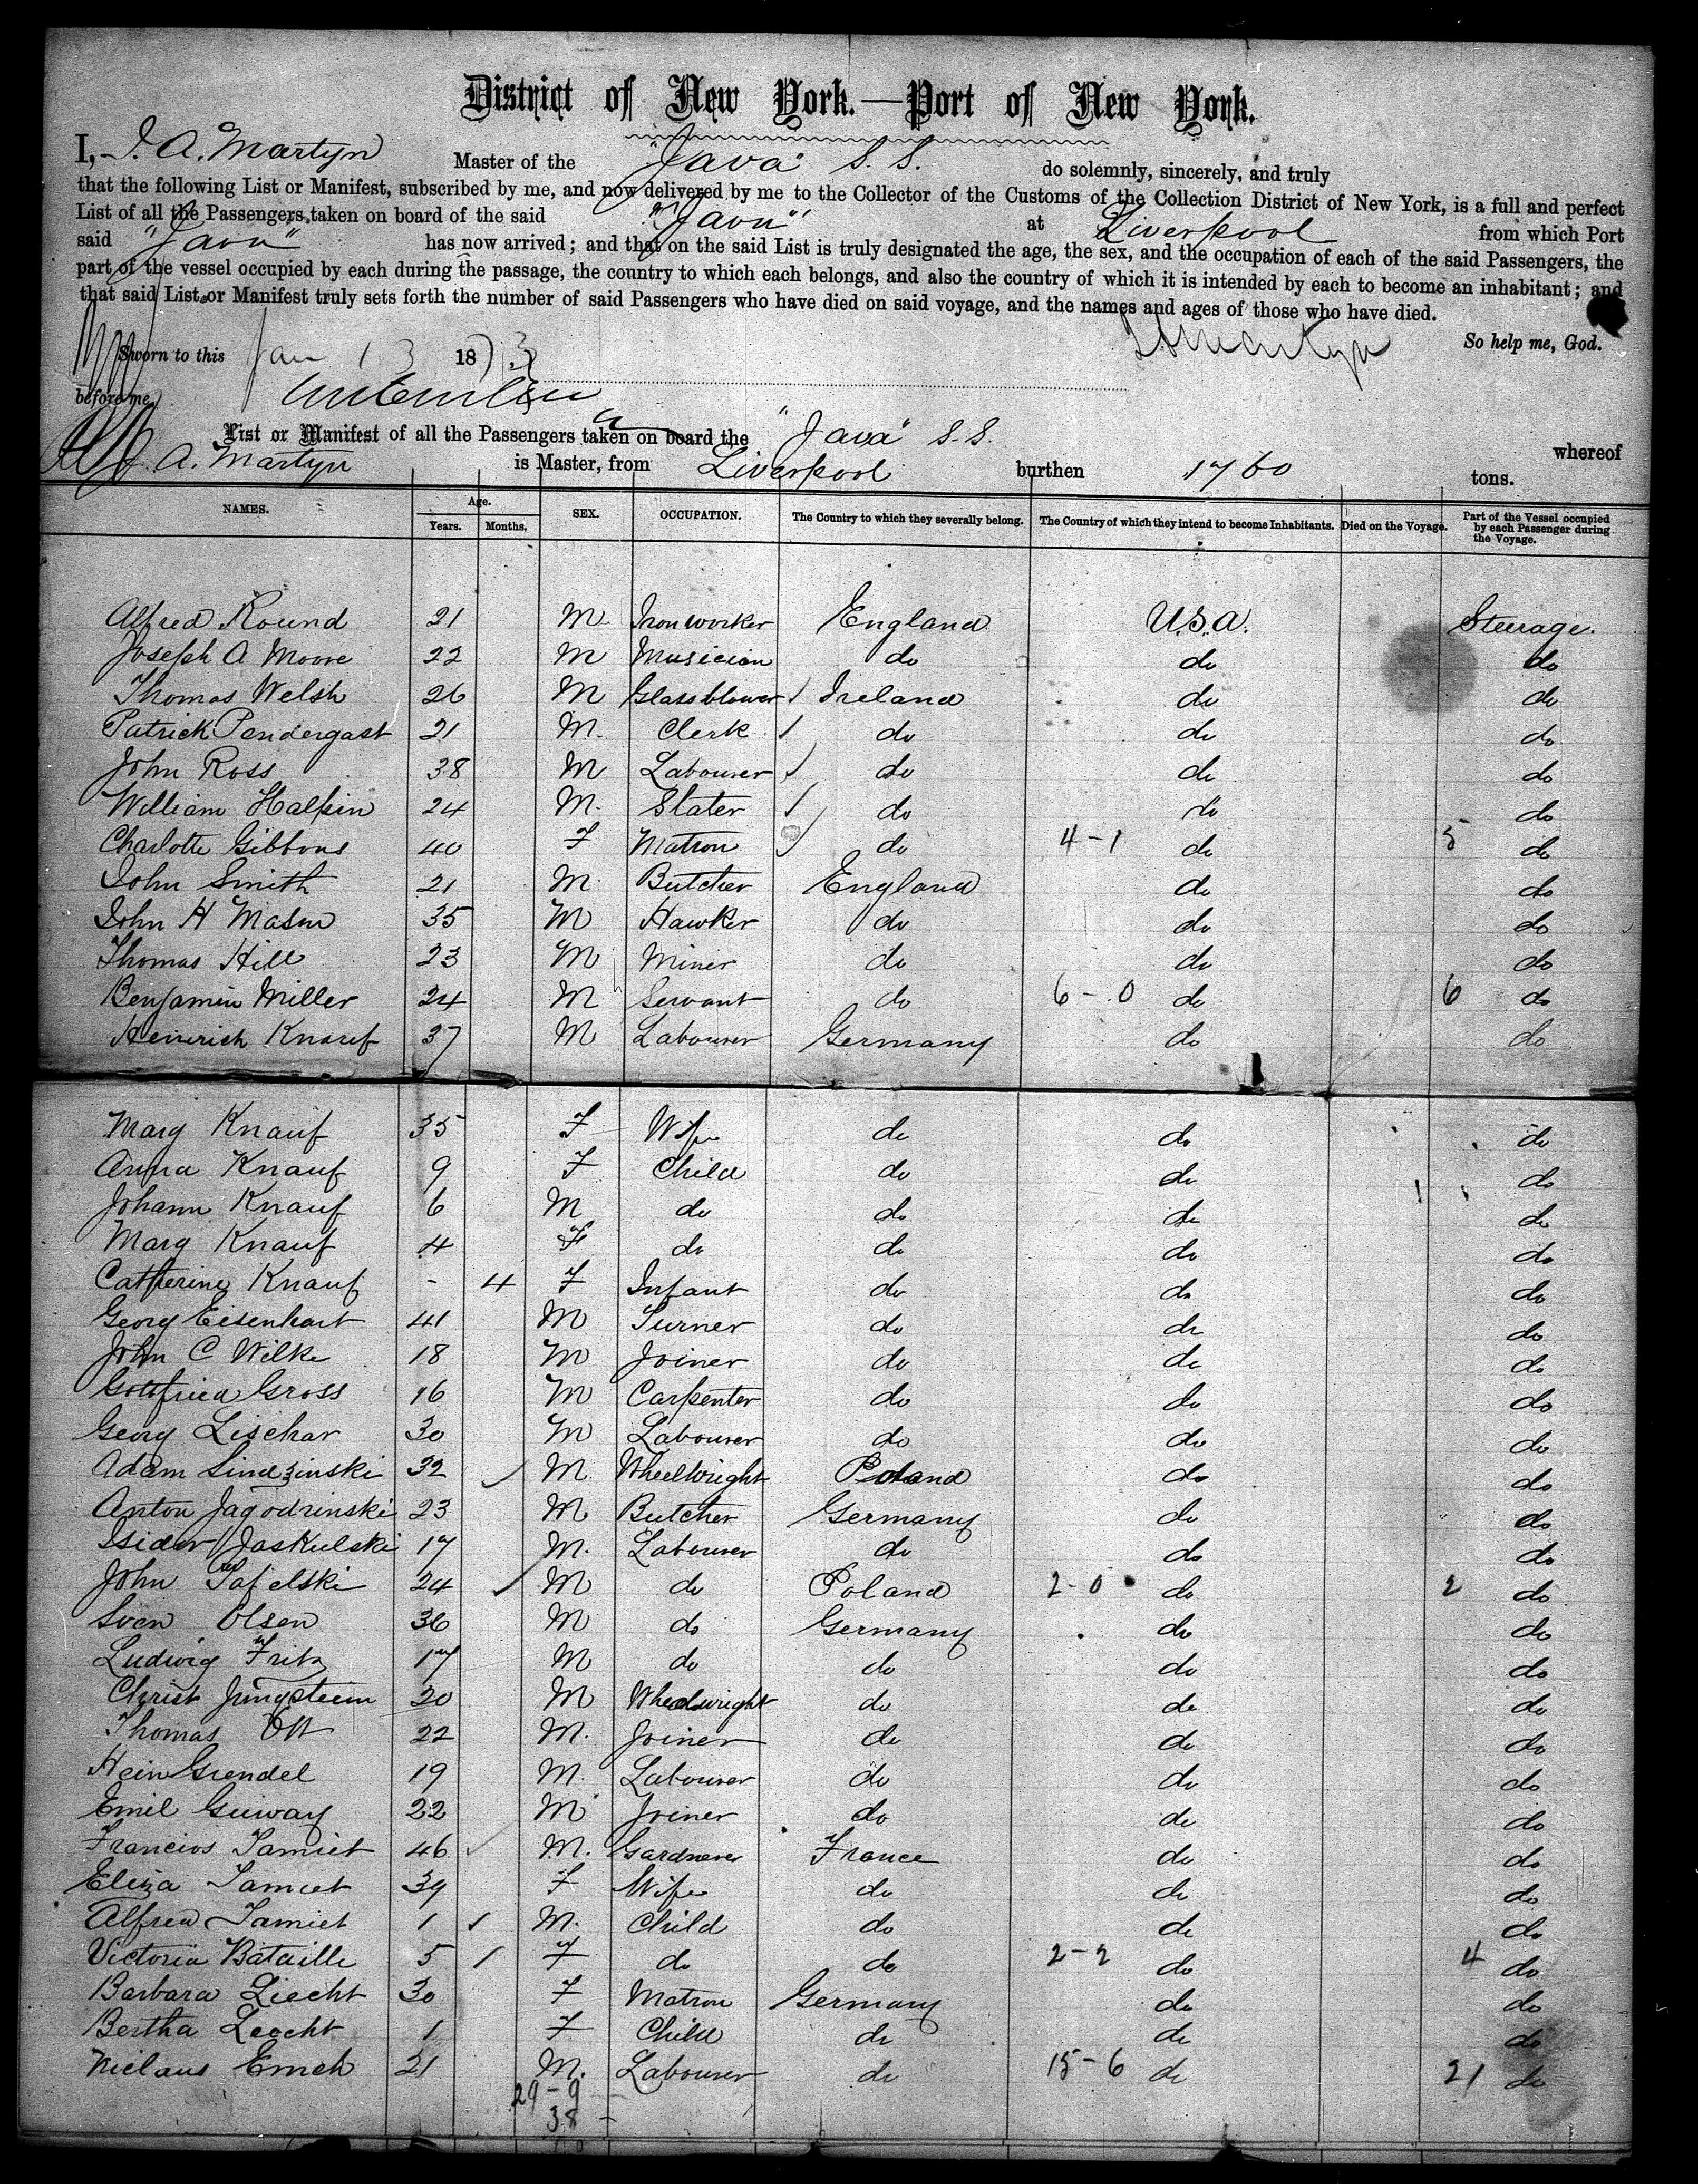 District of New York.—Port of New York.
I, J. A. Martyn Master of the "Java" S. S. do solemnly, sincerely, and truly
that the following List or Manifest, subscribed by me, and now delivered by me to the Collector of the Customs of the Collection District of New York, is a full and perfect
List of all the Passengers taken on board of the said "Java" at Liverpool from which Port
said "Java" has now arrived; and that on the said List is truly designated the age, the sex, and the occupation of each of the said Passengers, the
part of the vessel occupied by each during the passage, the country to which each belongs, and also the country of which it is intended by each to become an inhabitant; and
that said List or Manifest truly sets forth the number of said Passengers who have died on said voyage, and the names and ages of those who have died.
So help me, God.
Sworn to this Jan 13 1873 Martyn
before me,
List or Manifest of all the Passengers taken on board the "Java" S.S. whereof
J. A. Martyn is Master, from Liverpool burthen 1760 tons.
NAMES. Age. Years. Months. SEX. OCCUPATION. The Country to which they severally belong. The Country of which they intend to become Inhabitants. Died on the Voyage. Part of the Vessel occupied by each Passenger during the Voyage.
Alfred Round 21 M. Iron worker England U.S.A. Steerage.
Joseph A Moore 22 M Musician do do do
Thomas Welsh 26 M Glassblower Ireland do do
Patrick Pendergast 21 M. Clerk do do do
John Ross 38 M Labourer do do do
William Halpin 24 M. Slater do do do
Charlotte Gibbons 40 F Matron do 4-1 do 5 do
John Smith 21 M Butcher England do do
John H Mason 35 M Hawker do do do
Thomas Hill 23 M Miner do do do
Benjamin Miller 24 M Servant do 6-0 do 6 do
Heinrich Knauf 37 M Labourer Germany do do
Marg Knauf 35 F Wife do do do
Anna Knauf 9 F Child do do do
Johann Knauf 6 M do do do do
Marg Knauf 4 F do do do do
Catherine Knauf - 4 F Infant do do do
Georg Eisenhart 41 M Turner do do do
John C Wilke 18 M Joiner do do do
Gottfried Gross 16 M Carpenter do do do
Georg Lischar 30 M Labourer do do do
Adam Sindzinski 32 M. Wheelwright Poland do do
Anton Jagodzinski 23 M Butcher Germany do do
Isidor Jaskulski 17 M. Labourer do do do
John 24 M do Poland 2-0 do 2 do
Sven Olsen 36 M do Germany do do
Ludwig Fritz 17 M do do do do
Christ 20 M Wheelwright do do do
Thomas Ott 22 M. Joiner do do do
Hein Grendel 19 M. Labourer do do do
Emil 22 M Joiner do do do
Francios Tamiet 46 M. Gardnener France do do
Eliza Tamiet 39 F Wife do do do
Alfred Tamiet 1 M. Child do do do
Victoria Bataille 5 F do do 2-2 do 4 do
Barbara Liecht 30 F Matron Germany do do
Bertha Leecht 1 F Child do do do
Niclaus Emch 21 M. Labourer do 15-6 do 21 do
29-9
38